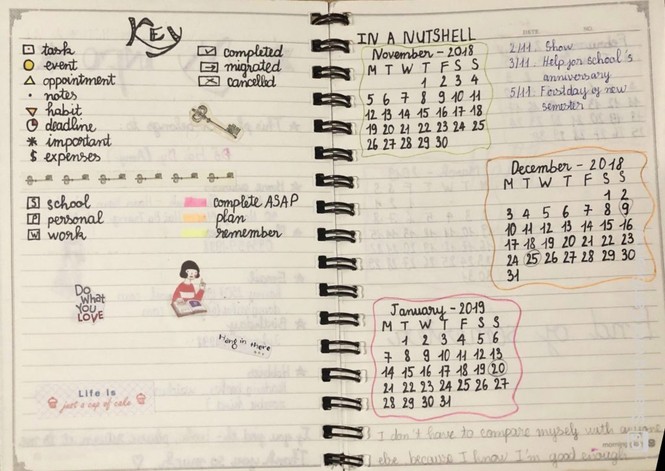 KEY
task
event
appointment
notes
habit
deadline
* important
$ expenses
completed
migrated
cancelled
S school
P personal
W work
complete ASAP
plan
remember
Do
What
YOU
LOVE
Hang in there...
Life is
just a cup of cake
IN A NUTSHELL
November - 2018
M T W T F S S
1 2 3 4
5 6 7 8 9 10 11
12 13 14 15 16 17 18
19 20 21 22 23 24 25
26 27 28 29 30
DATE NO.
2/11: Show
3/11: Help for school's
anniversary
5/11: First day of new
semester
December - 2018
M T W T F S S
1 2
3 4 5 6 7 8 9
10 11 12 13 14 15 16
17 18 19 20 21 22 23
24 25 26 27 28 29 30
31
January - 2019
M T W T F S S
1 2 3 4 5 6
7 8 9 10 11 12 13
14 15 16 17 18 19 20
21 22 23 24 25 26 27
28 29 30 31
I don't have to compare myself with anyone
else because I know I'm good enough